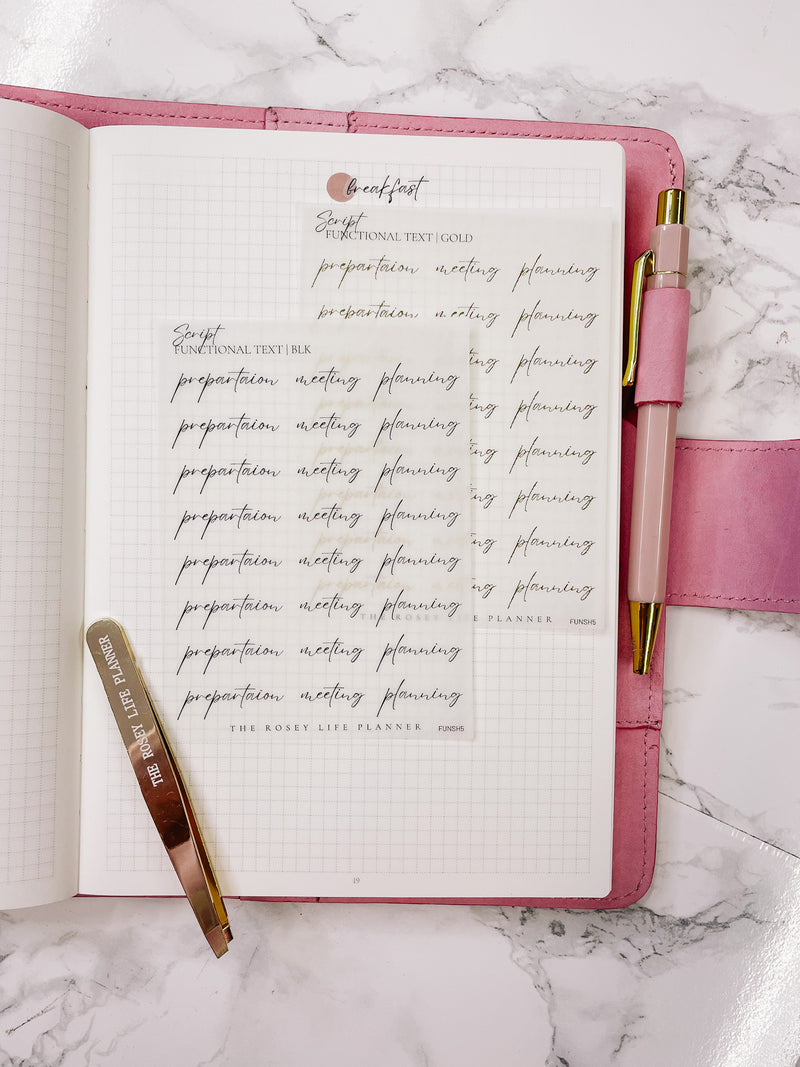 breakfast
Script
FUNCTIONAL TEXT | GOLD
prepartaion meeting planning
prepartaion meeting planning
planning
ng planning
ng planning
ng planning
ng planning
ng planning
THE ROSEY LIFE PLANNER FUNSH5
Script
FUNCTIONAL TEXT | BLK
prepartaion meeting planning
prepartaion meeting planning
prepartaion meeting planning
prepartaion meeting planning
prepartaion meeting planning
prepartaion meeting planning
prepartaion meeting planning
prepartaion meeting planning
THE ROSEY LIFE PLANNER FUNSH5
THE ROSEY LIFE PLANNER
19